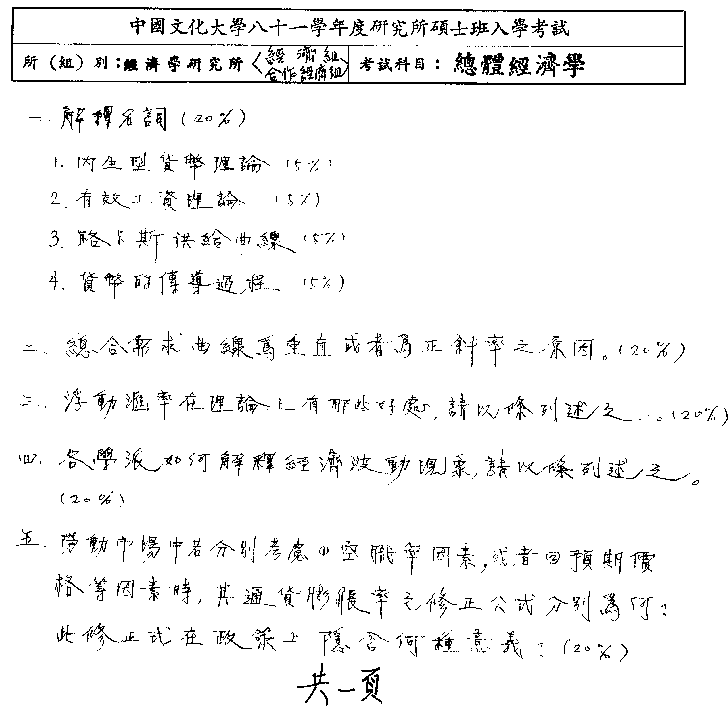 中國文化大學八十一學年度研究所碩士班入學考試
所(組)別：經濟學研究所〈經濟組 合作經濟組〉 考試科目：總體經濟學
一. 解釋名詞 (20%)
1. 內生型貨幣理論 (5%)
2. 有效工資理論 (5%)
3. 路卡斯供給曲線 (5%)
4. 貨幣的傳導過程. (5%)
二. 總合需求曲線為垂直或者為正斜率之原因。(20%)
三. 浮動滙率在理論上有那些好處, 請以條列述之...(20%)
四. 各學派如何解釋經濟波動現象, 請以條列述之。
(20%)
五. 勞動市場中若分別考慮①空職率因素, 或者②預期價
格等因素時, 其通貨膨脹率之修正公式分別為何?
此修正式在政策上隱含何種意義? (20%)
共一頁